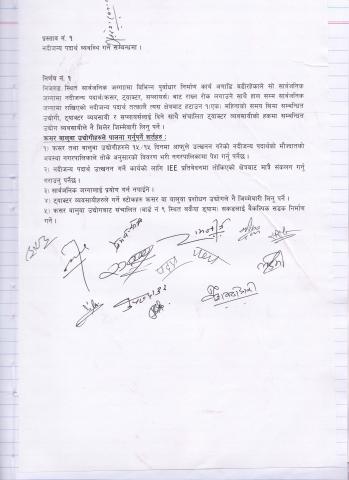 प्रस्ताव नं. १
नदीजन्य पदार्थ व्यवस्थित गर्ने सम्बन्धमा ।
निर्णय नं. १
निजगढ स्थित सार्वजनिक जग्गामा विभिन्न पूर्वाधार निर्माण कार्य अगाडि बढीरहेकाले सो सार्वजनिक
जग्गामा नदीजन्य पदार्थ(क्रसर, ट्याक्टर, सप्लायर्स) बाट राख्न रोक लगाउने साथै हाल सम्म सार्वजनिक
जग्गामा राखिएको नदीजन्य पदार्थ तत्काल त्यस क्षेत्रबाट हटाउन १(एक) महिनाको समय सिमा सम्बन्धित
उद्योगी, ट्याक्टर व्यवसायी र सप्लायर्सलाई दिने साथै संचालित ट्याक्टर व्यवसायीको हकमा सम्बन्धित
उद्योग व्यवसायीले नै मिलेर जिम्मेवारी लिनु पर्ने ।
क्रसर बालुवा उद्योगीहरुले पालना गर्नुपर्ने शर्तहरु :
१। क्रसर तथा बालुवा उद्योगीहरुले १५/१५ दिनमा आफुले उत्खनन गरेको नदीजन्य पदार्थको मौज्दातको
अवस्था नगरपालिकाले तोके अनुसारको विवरण भरी नगरपालिकामा पेश गर्नु पर्नेछ ।
२। नदीजन्य पदार्थ उत्खनन गर्ने कार्यको लागि IEE प्रतिवेदनमा तोकिएको क्षेत्रबाट मात्रै संकलन गर्नु
गराउनु पर्नेछ ।
३। सार्वजनिक जग्गालाई प्रयोग गर्न नपाईने ।
४। ट्याक्टर व्यवसायीहरुले गर्ने स्टोकहरु क्रसर वा बालुवा प्रशोधन उद्योगले नै जिम्मेवारी लिनु पर्ने ।
५। क्रसर उद्योगबाट संचालित (वार्ड नं ९ स्थित सकैया ड्याम) सकडलाई बैकल्पिक सडक निर्माण
गर्ने ।